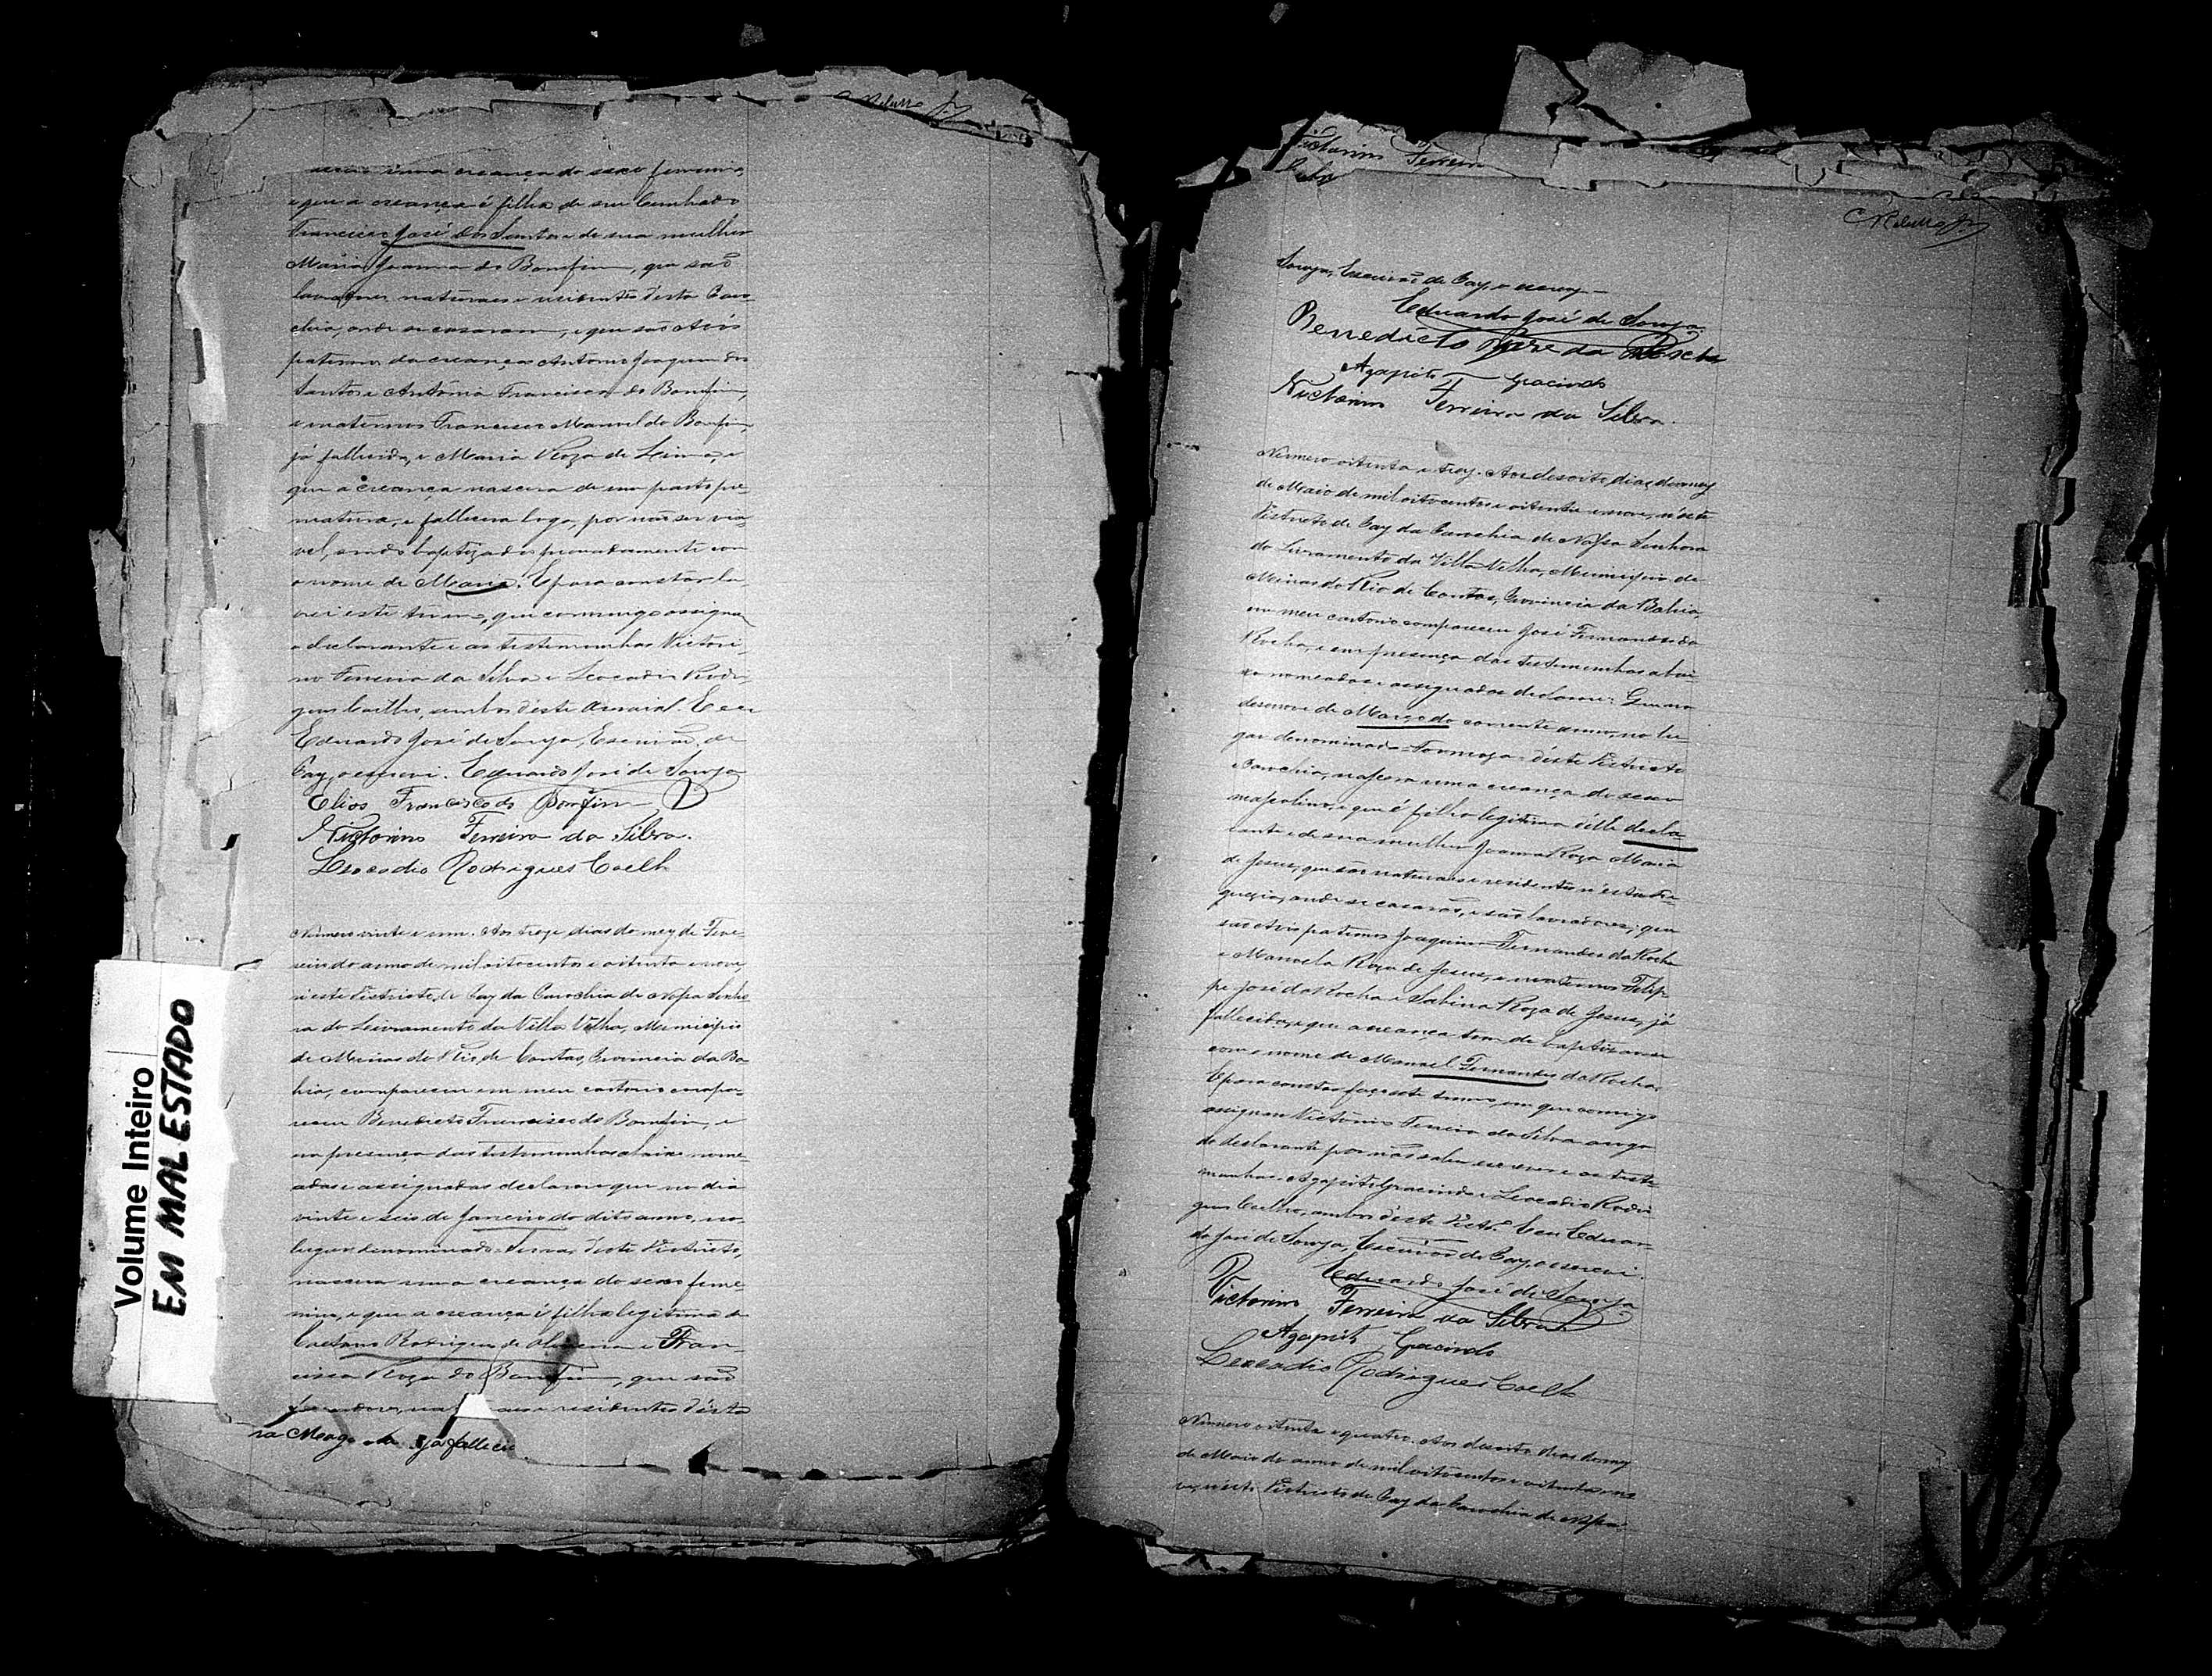 uma creança do sexo feminino,
e que a creança é filha de seu Cunhado
Francisco José dos Santos e de sua mulher
Maria Joanna do Bomfim, que são
lavradores, naturaes e residentes desta Paro-
chia, onde se casaram, e que são Avós
paternos da creança Antonio Joaquim dos
Santos e Antônia Francisca do Bomfim,
e maternos Francisco Manoel do Bomfim,
já fallecido, e Maria Roza de Lima, e
que a creança nascera de um parto pre-
maturo, e fallecera logo, por não ser via-
vel, sendo baptizada privadamente com
o nome de Maria. E para constar, la-
vrei este termo, que commigo assignar
o declarante e as testemunhas Victori-
no Ferreira da Silva e Leocadio Rodri-
gues Coelho, ambos d'este Arraial. E eu
Eduardo José de Souza, Escrivão de
Paz, o escrevi. Eduardo José de Souza
Elias Francisco do Bomfim
Victorino Ferreira da Silva.
Leocadio Rodrigues Coelh
Número vinte e um. Aos treze dias do mez de Feve-
reiro do anno de mil oitocentos e oitenta e nove,
n'este Districto de Paz da Parochia de Nossa Senho-
ra do Livramento da Villa Velha, Municipio
de Minas do Rio de Contas, Provincia da Ba-
hia, compareceu em meu cartorio compa-
receu Benedicto Francisco do Bomfim, e
na presença das testemunhas abaixo nome-
adas e assignadas declarou que no dia
vinte e seis de Janeiro do dito anno, no
lugar denominado Serra, deste Districto,
nascera uma creança do sexo feme-
nino, e que a creança é filha legitima de
Caetano Rodrigues de Oliveira e Fran-
cisca Roza do Bomfim, que são
residentes d'esta
já falleci
Volume Inteiro
EM MAL ESTADO
Victorino Ferreira
Souza, Escrivão de Paz, o escrevy
Eduardo José de Souza
Benedicto José da Rocha
Agapito Gracindo
Victorino Ferreira da Silva.
Número oitenta e trez. Aos desoito dias do mez
de Maio de mil oitocentos e oitenta e nove, n'este
Districto de Paz da Parochia de Nossa Senhora
do Livramento da Villa Velha, Municipio de
Minas do Rio de Contas, Provincia da Bahia,
em meu cartorio compareceu José Fernandes da
Rocha, e em presença das testemunhas abai-
xo nomeadas e assignadas declarou: Que no
desenove de Março do corrente anno, no lu-
gar denominado Formoza d'este Districto
e Parochia, nascera uma creança do sexo
masculino, e que é filho legitimo d'elle decla-
rante e de sua mulher Joanna Roza Maria
de Jesus, que são naturaes e residentes n'esta Fre-
guezia, onde se casarão, e são lavradores; que
são Avós paternos Joaquim Fernandes da Rocha
e Manoela Roza de Jesus, e maternos Felip-
pe José da Rocha e Sabina Roza de Jesus, já
fallecidos, e que a creança tem de baptizar-se
com o nome de Manoel Fernandes da Rocha.
E para constar faço este termo, em que comigo
assignam Victorino Ferreira da Silva a rogo
do declarante por não saber escrever e as teste-
munhas Agapito Gracindo e Leocadio Rodri-
gues Coelho, ambos d'este Distº. E eu Eduar-
do José de Souza, Escrivão de Paz, o escrevi.
Eduardo José de Souza
Victorino Ferreira da Silva
Agapito Gracindo
Leocadio Rodrigues Coelh
Número oitenta e quatro. Aos desoito dias do mez
de Maio do anno de mil oitocentos e oitenta e no-
ve, n'este Districto de Paz da Parochia de Nossa